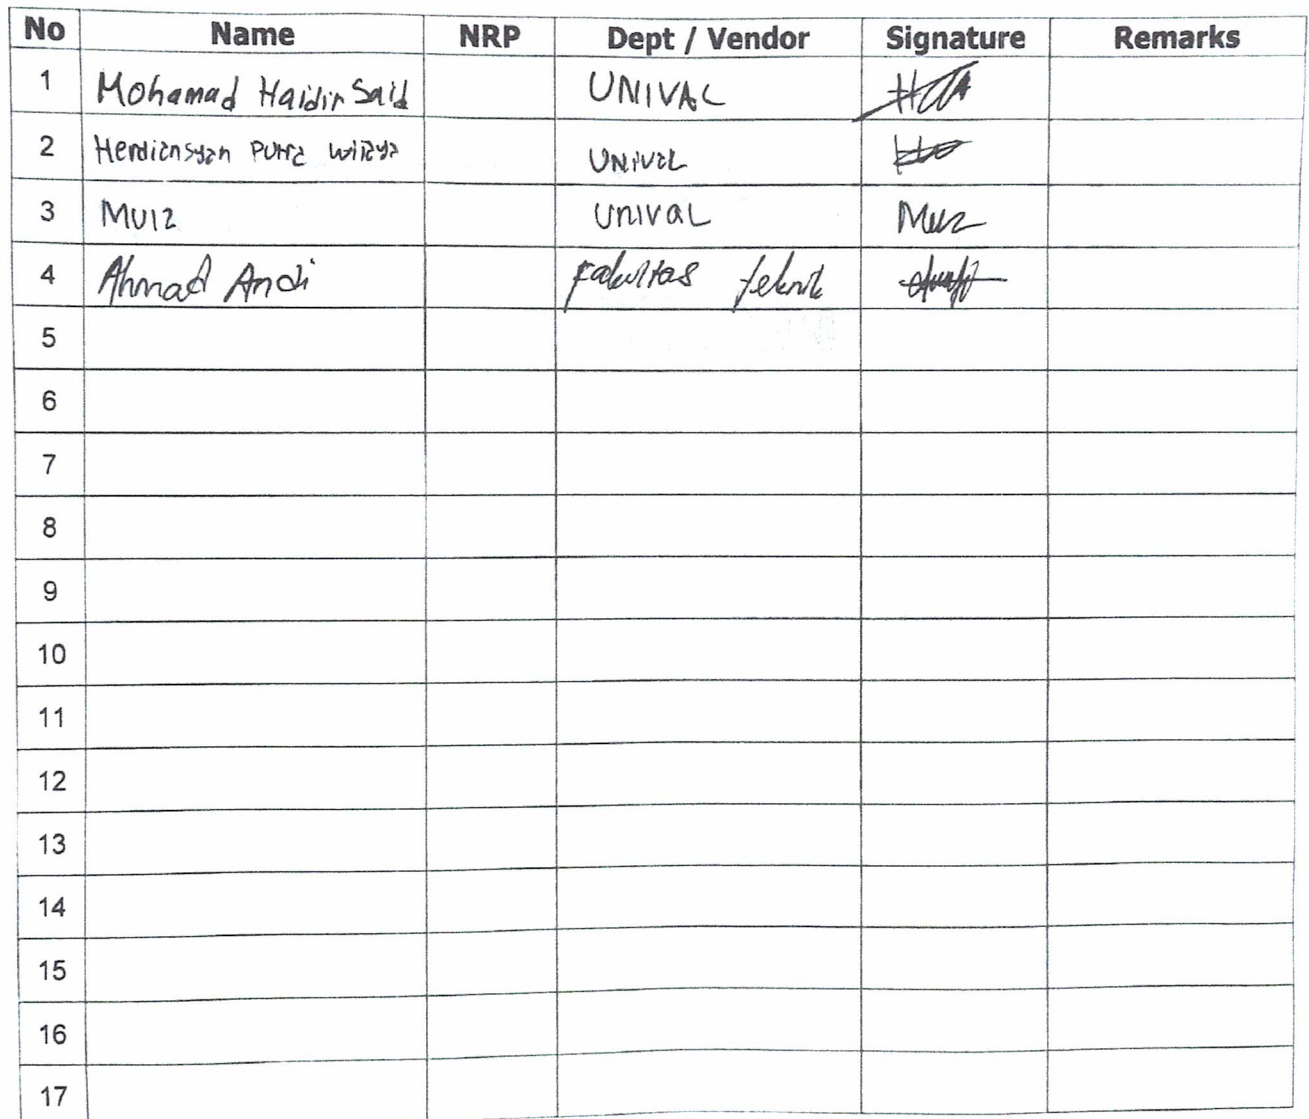 No Name NRP Dept / Vendor Signature Remarks
1 Mohamad Haidir Said UNIVAL
2 Herdiansyah Putra Wijaya UNIVAL
3 MUIZ UNIVAL Muiz
4 Ahmad Andi Fakultas Teknik
5
6
7
8
9
10
11
12
13
14
15
16
17